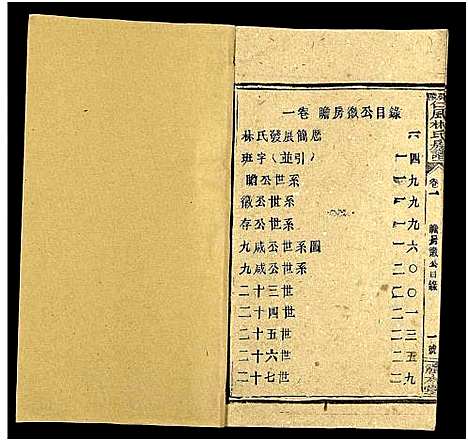 一卷 瞻房徽公目錄
林氏發展簡歷 六
班字（並引） 一四
瞻公世系 一九
徽公世系 一九
存公世系 一九
九咸公世系圖 一六
九咸公世系 二〇
二十三世 二〇
二十四世 二一
二十五世 二三
二十六世 二五
二十七世 二九
仁風林氏房譜
卷一
瞻房徽公目錄
一號